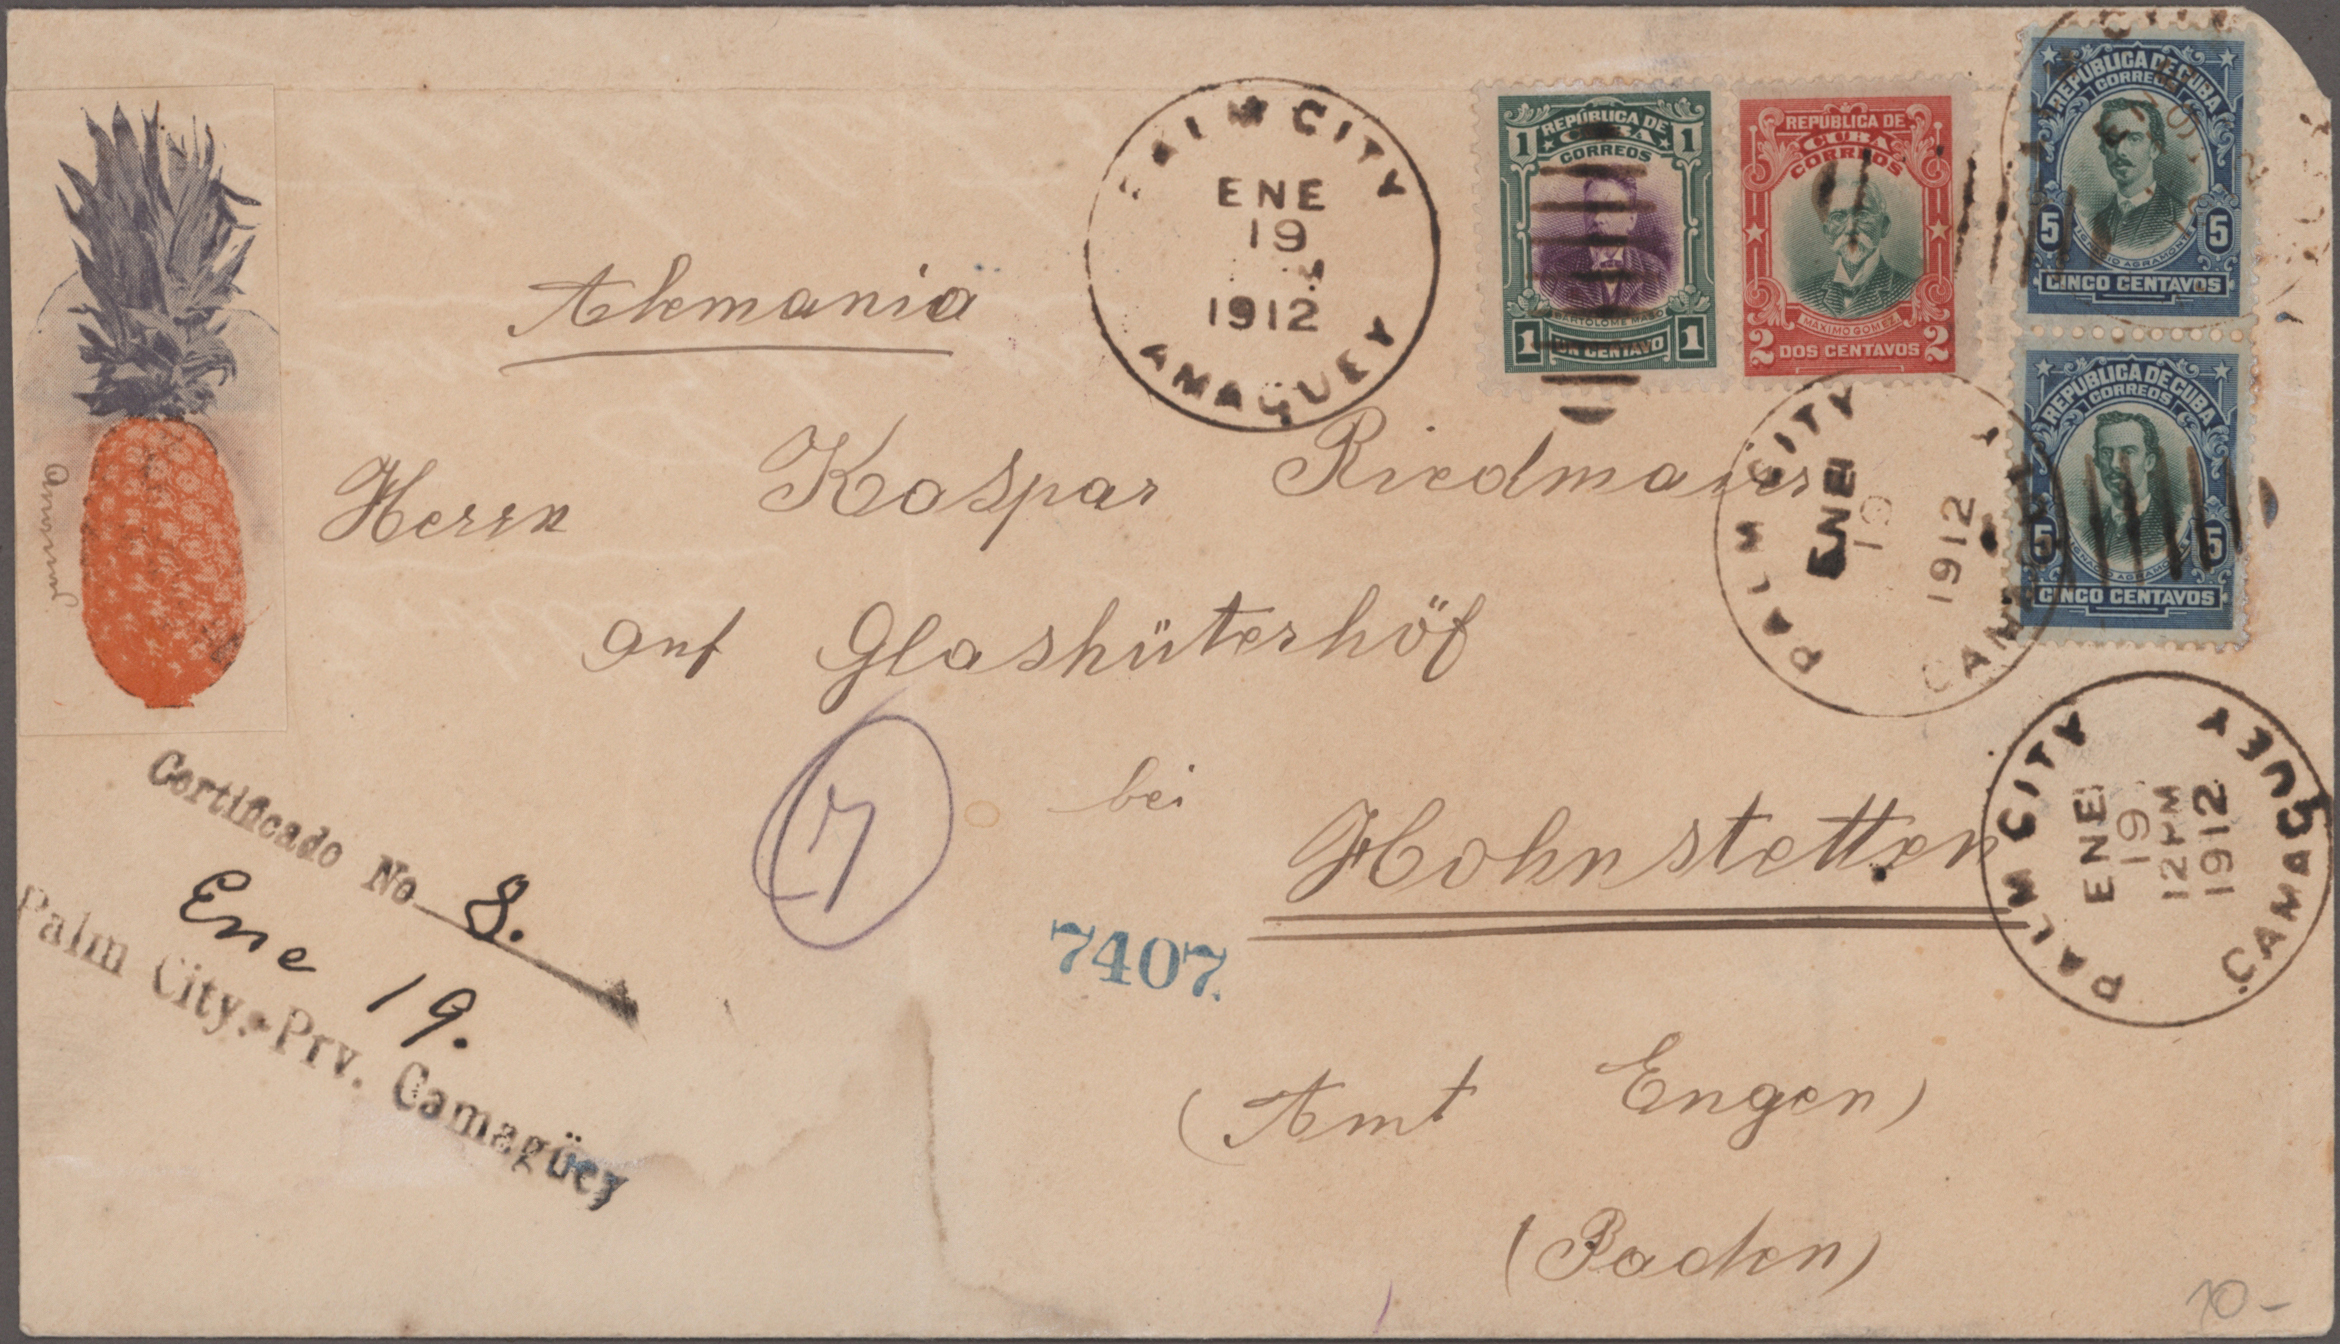 PALM CITY
ENE
19
1912
CAMAGÜEY
REPÚBLICA DE
CUBA
CORREOS
1 1
BARTOLOMÉ MASÓ
1 UN CENTAVO 1
REPÚBLICA DE
CUBA
CORREOS
MÁXIMO GOMEZ
2 DOS CENTAVOS 2
REPÚBLICA DE CUBA
CORREOS
5 5
IGNACIO AGRAMONTE
CINCO CENTAVOS
REPÚBLICA DE CUBA
CORREOS
5 5
IGNACIO AGRAMONTE
CINCO CENTAVOS
Alemania
Herrn Kaspar Riedmaier
auf Glashüterhöf
bei
Hohnstetten
(Amt Engen)
(Baden)
PALM CITY
ENE
19
1912
CAMAGÜEY
PALM CITY
ENE
19
12 PM
1912
CAMAGÜEY
Certificado No 8.
Ene 19.
Palm City.-Prv. Camagüey
7
7407.
10-